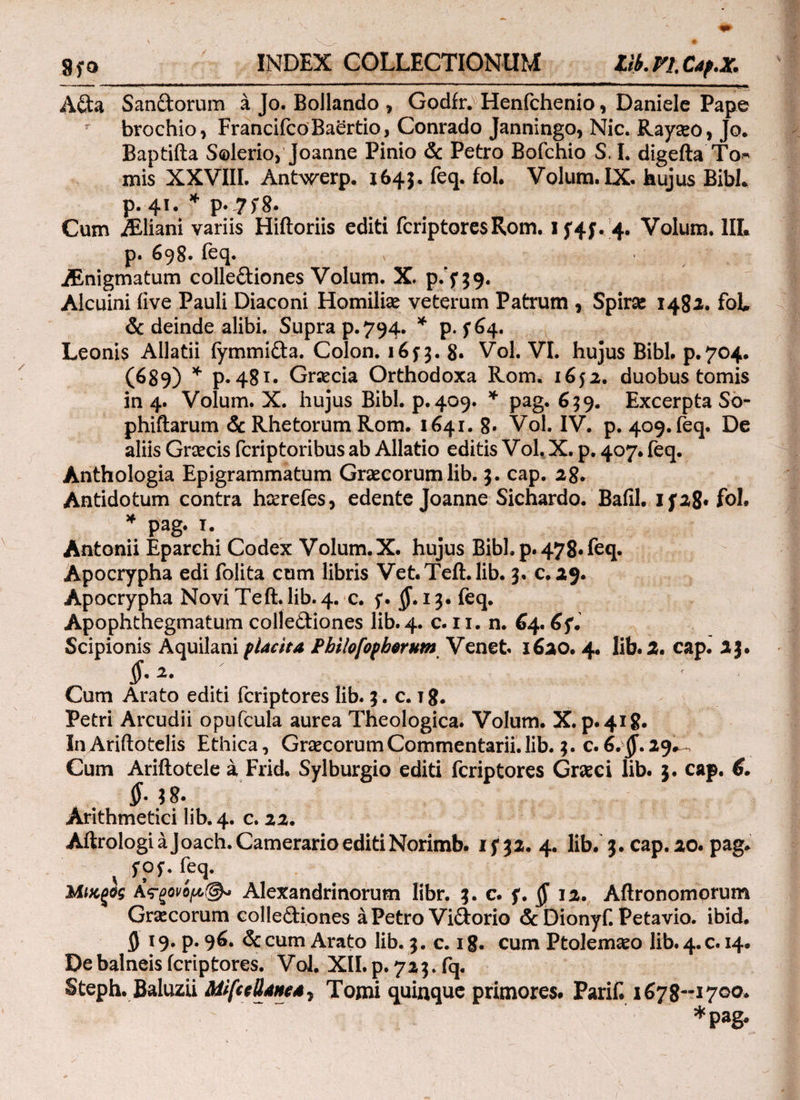 8ſo INDEX COLLECTIONUM Lib. VI. Cap. X.
Acta Sanctorum à Jo. Bollando , Godfr. Henſchenio, Daniele Pape
brochio, FranciſcoBaërtio, Conrado Janningo, Nic. Rayæo, Jo.
Baptiſta Solerio, Joanne Pinio & Petro Boſchio S. I. digeſta To-
mis XXVIII. Antwerp. 1643. ſeq. fol. Volum. IX. hujus Bibl.
p. 41. * p. 7ſ8.
Cum Æliani variis Hiſtoriis editi ſcriptores Rom. 1ſ4ſ. 4. Volum. III.
p. 698. ſeq.
Ænigmatum collectiones Volum. X. p. ſ39.
Alcuini ſive Pauli Diaconi Homiliæ veterum Patrum , Spiræ 1482. fol.
& deinde alibi. Supra p. 794. * p. ſ64.
Leonis Allatii ſymmicta. Colon. 16ſ3. 8. Vol. VI. hujus Bibl. p. 704.
(689) * p. 481. Græcia Orthodoxa Rom. 16ſ2. duobus tomis
in 4. Volum. X. hujus Bibl. p. 409. * pag. 639. Excerpta So-
phiſtarum & Rhetorum Rom. 1641. 8. Vol. IV. p. 409. ſeq. De
aliis Græcis ſcriptoribus ab Allatio editis Vol. X. p. 407. ſeq.
Anthologia Epigrammatum Græcorum lib. 3. cap. 28.
Antidotum contra hæreſes, edente Joanne Sichardo. Baſil. 1ſ28. fol.
* pag. 1.
Antonii Eparchi Codex Volum. X. hujus Bibl. p. 478. ſeq.
Apocrypha edi ſolita cum libris Vet. Teſt. lib. 3. c. 29.
Apocrypha Novi Teſt. lib. 4. c. ſ. §. 13. ſeq.
Apophthegmatum collectiones lib. 4. c. 11. n. 64. 6ſ.
Scipionis Aquilani placita Philoſophorum Venet. 1620. 4. lib. 2. cap. 23.
§. 2.
Cum Arato editi ſcriptores lib. 3. c. 18.
Petri Arcudii opuſcula aurea Theologica. Volum. X. p. 418.
In Ariſtotelis Ethica, Græcorum Commentarii. lib. 3. c. 6. §. 29.
Cum Ariſtotele à Frid. Sylburgio editi ſcriptores Græci lib. 3. cap. 6.
§. 38.
Arithmetici lib. 4. c. 22.
Aſtrologi à Joach. Camerario editi Norimb. 1ſ32. 4. lib. 3. cap. 20. pag.
ſoſ. ſeq.
Μικρὸς Ἀϛρονόμ@ Alexandrinorum libr. 3. c. ſ. § 12. Aſtronomorum
Græcorum collectiones à Petro Victorio & Dionyſ. Petavio. ibid.
§ 19. p. 96. & cum Arato lib. 3. c. 18. cum Ptolemæo lib. 4. c. 14.
De balneis ſcriptores. Vol. XII. p. 723. ſq.
Steph. Baluzii Miſcellanea, Tomi quinque primores. Pariſ. 1678--1700.
*pag.